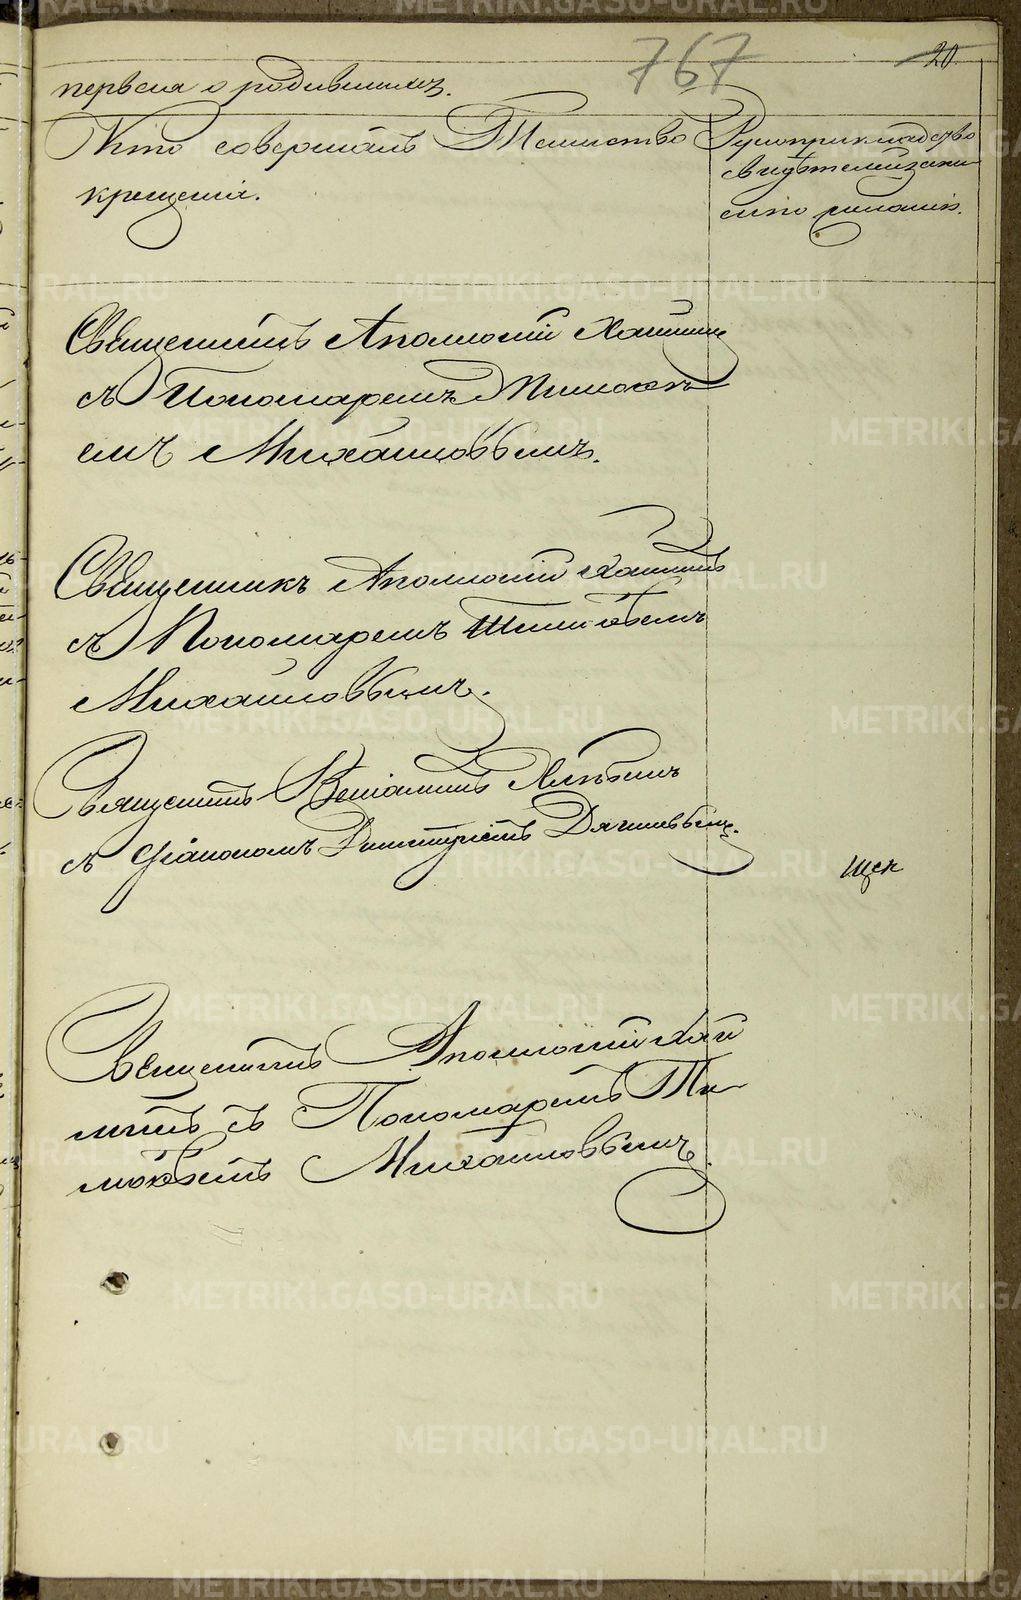 767
20
первая о родившихся.
Кто совершалъ Таинство
крещенія.
Рукоприкладство
свидѣтелей записи
по желанію.
Священникъ Аполлоній
съ Пономаремъ Тимоѳе
емъ Михайловымъ.
Священникъ Аполлоній
съ Пономаремъ Тимоѳеемъ
Михайловымъ.
Священникъ Веніаминъ
съ Діакономъ Димитріемъ
Священникъ Аполлоній
съ Пономаремъ Ти
моѳеемъ Михайловымъ.
METRIKI.GASO-URAL.RU